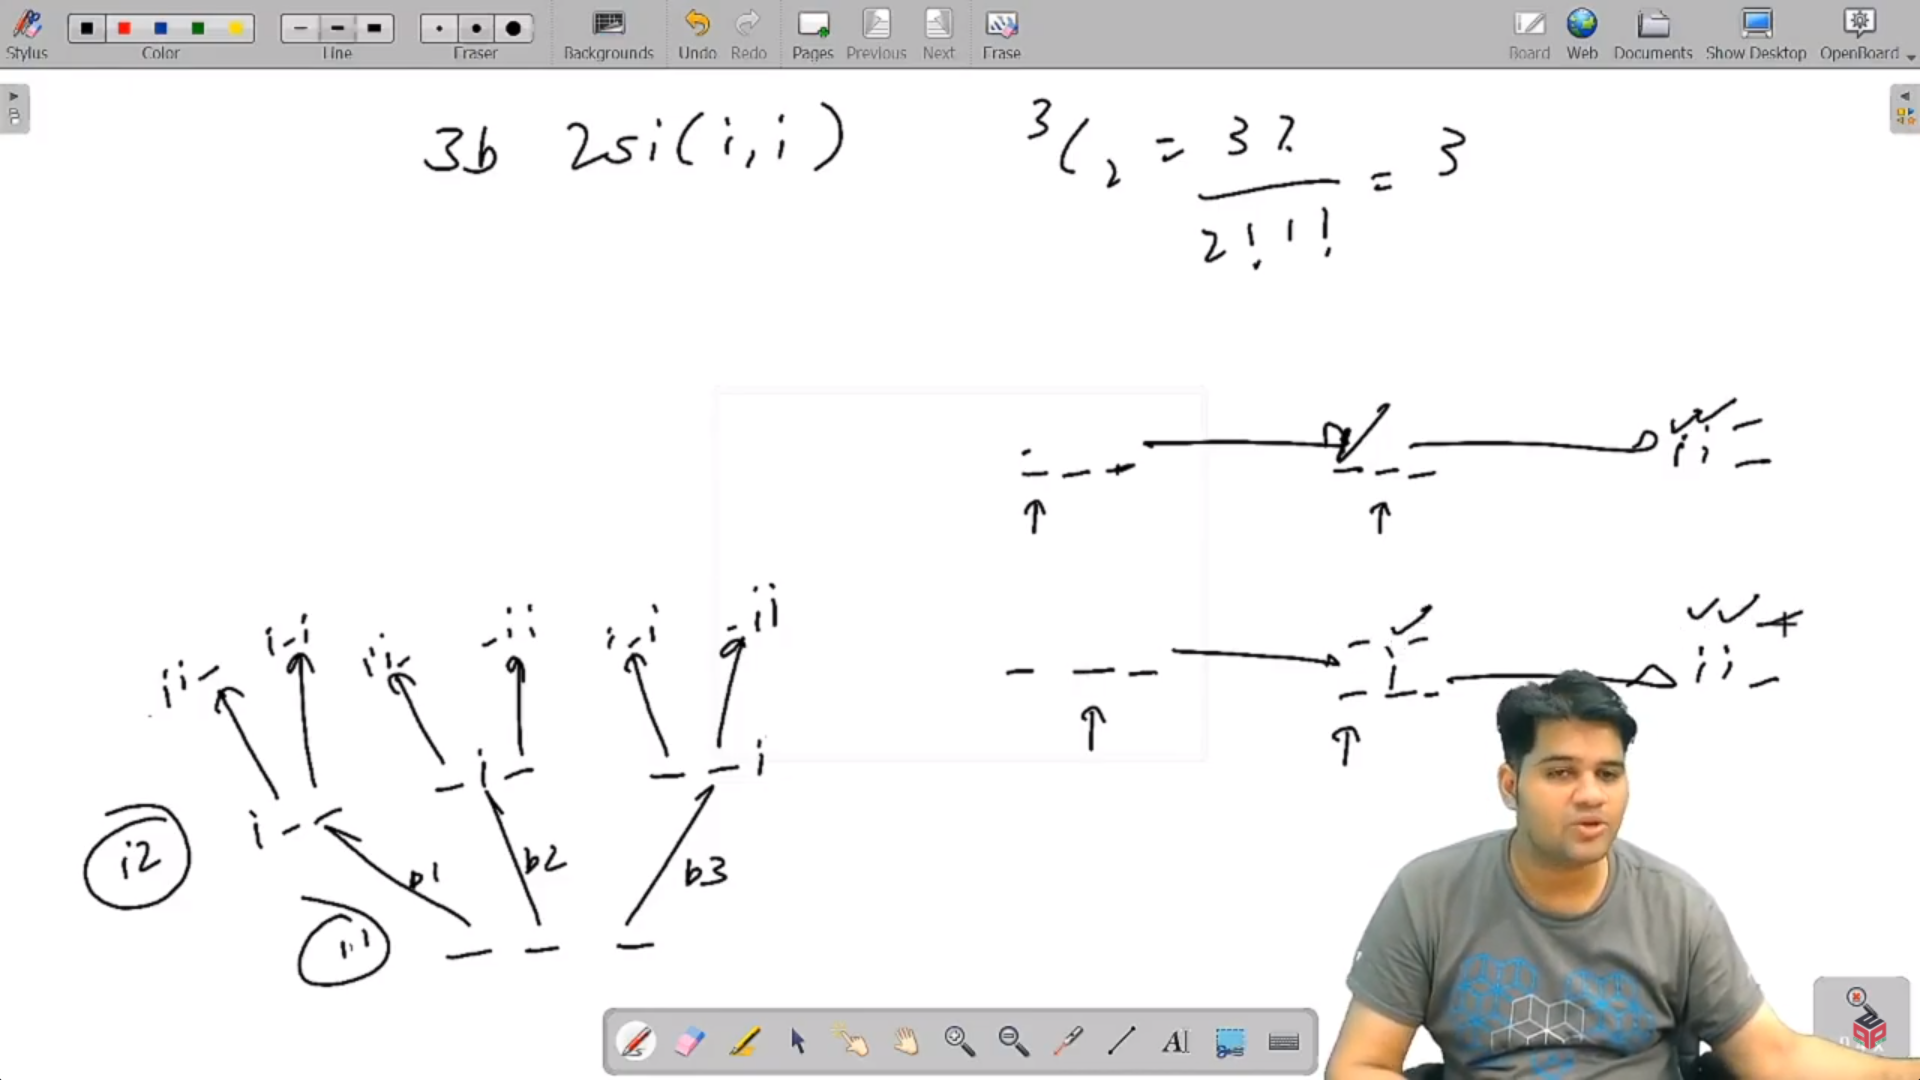 Stylus Color Line Eraser Backgrounds Undo Redo Pages Previous Next Erase Board Web Documents Show Desktop OpenBoard
3b 2si(i,i)
3C2 = 3! / 2! 1! = 3
ii -
- - - - - - ii -
ii- i-i ii- -ii i-i -ii
- - - - i - ii -
i-- -i- --i
i2 b1 b2 b3
i1
- - -